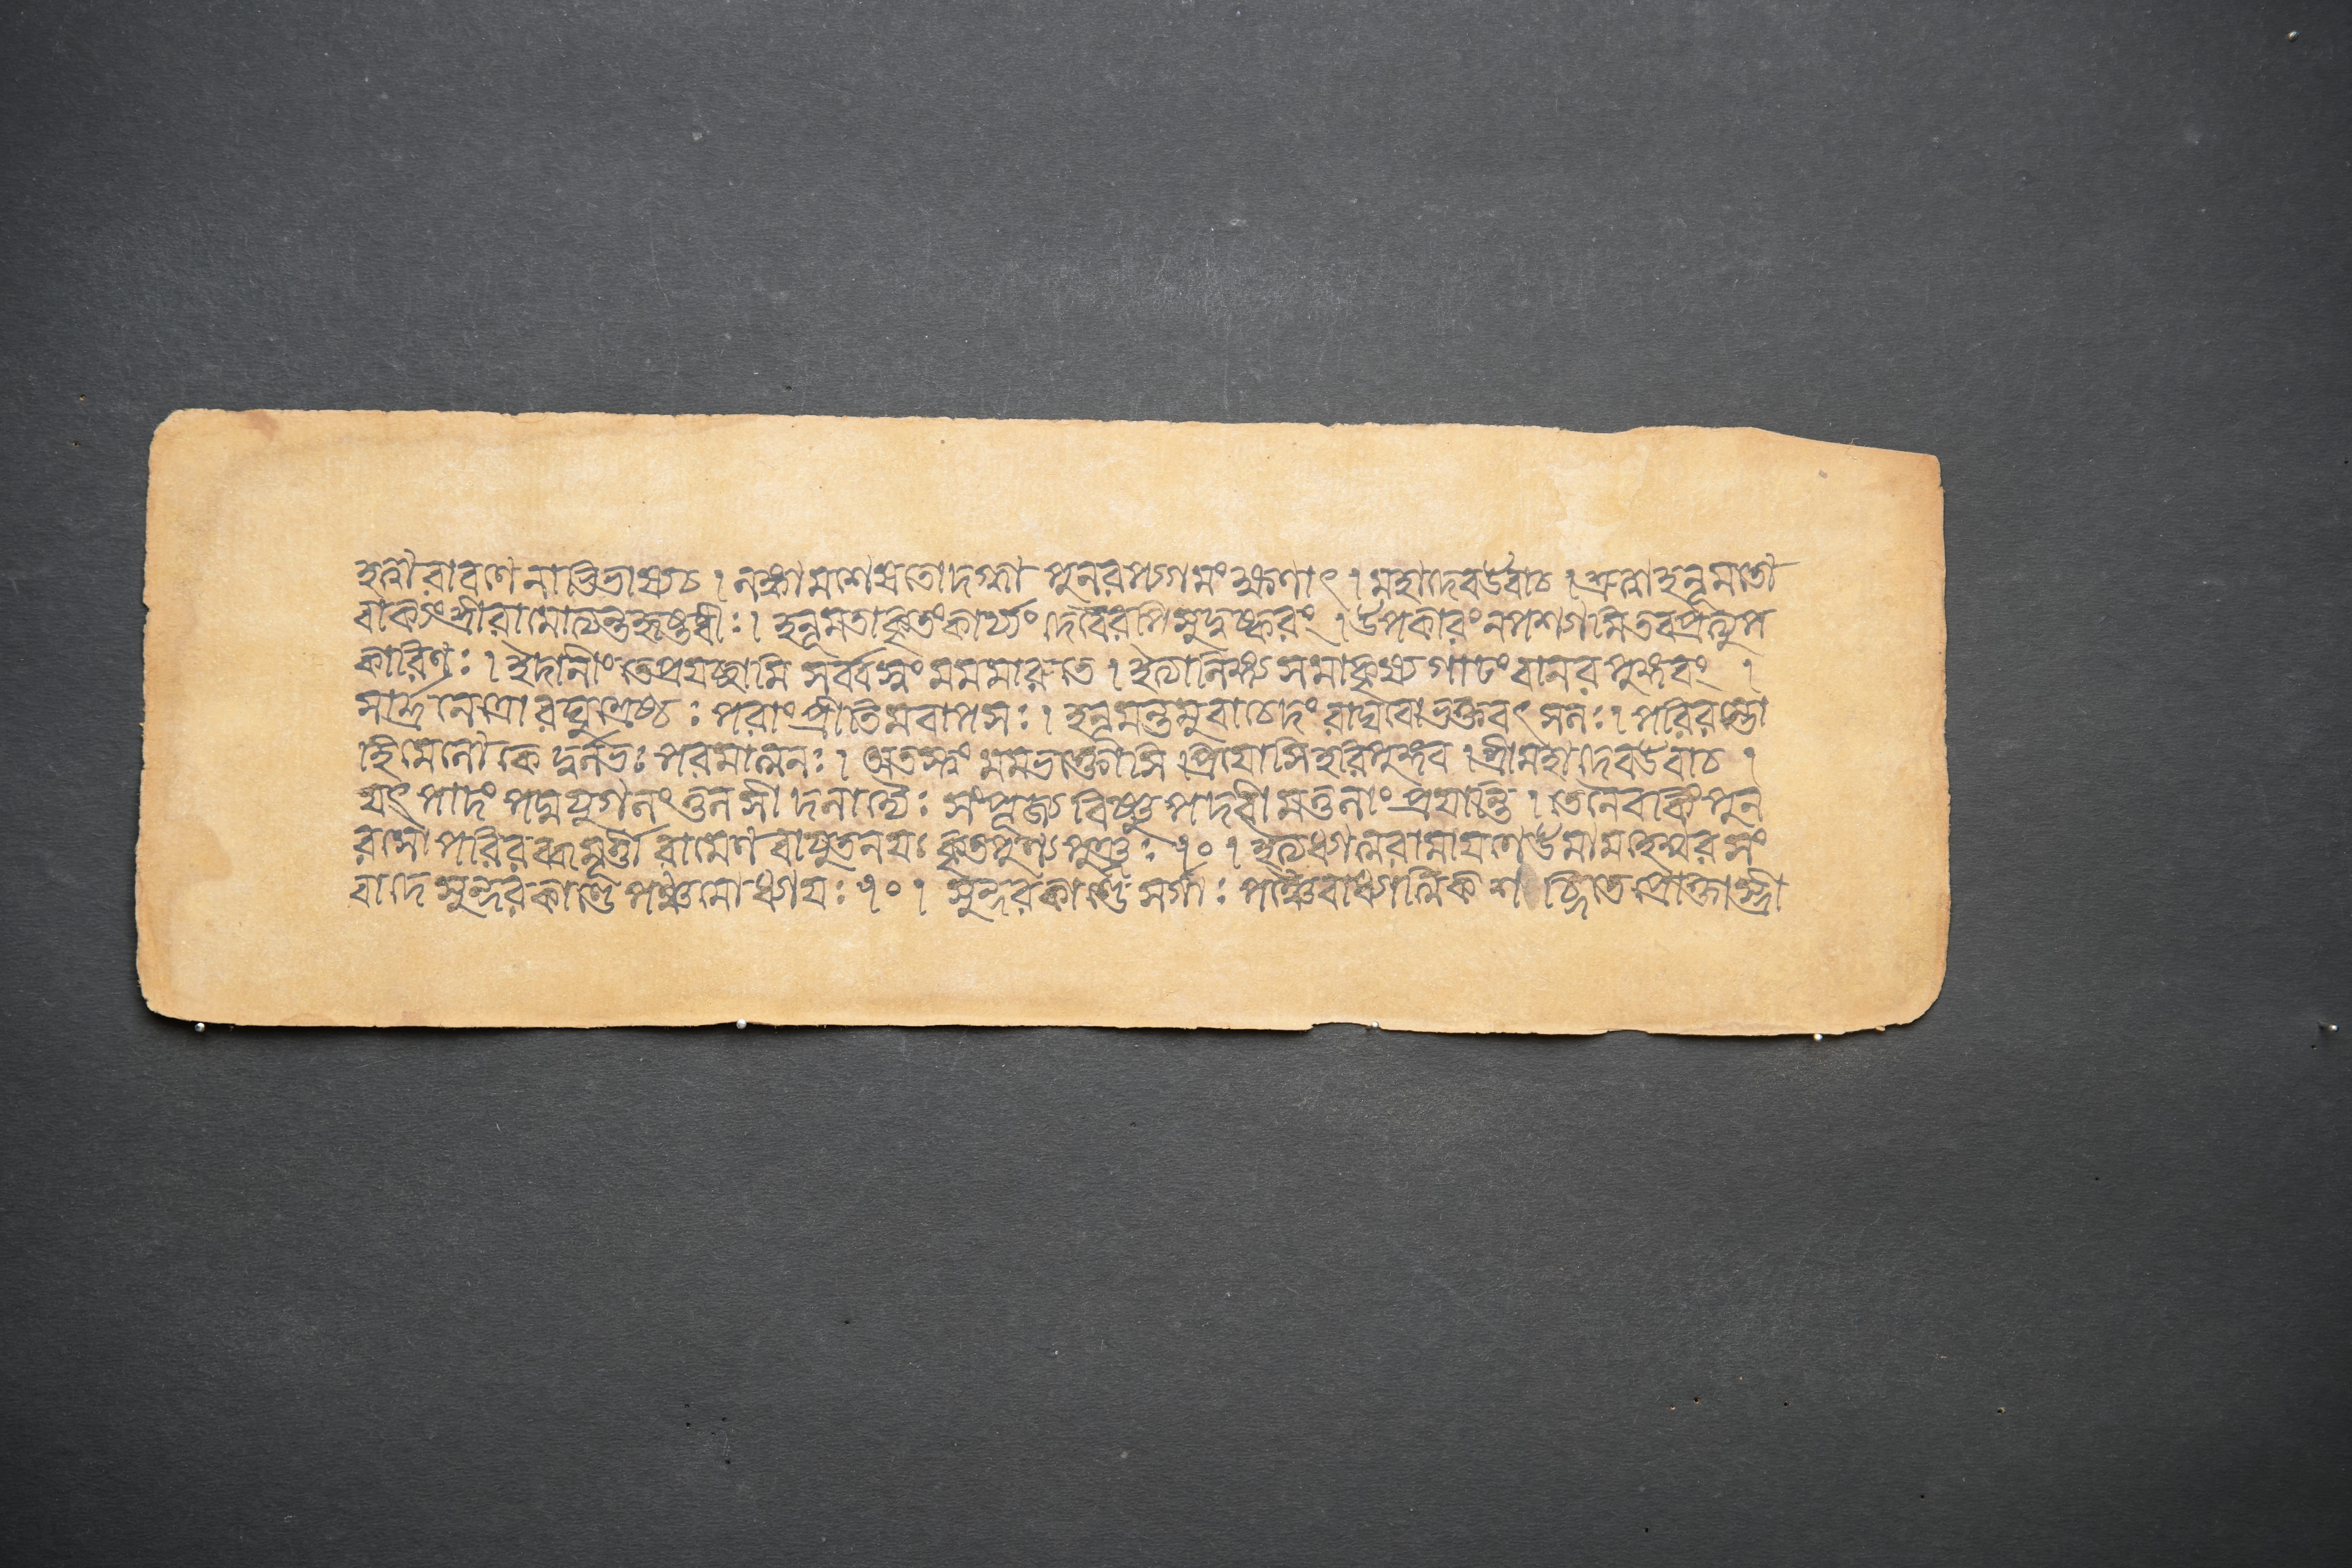 হত্বা রাবণেনাভিভাষ্য চ । লঙ্কামশেষতো দগ্ধ্বা পুনরপ্যগমং ক্ষণাৎ । মহাদেব উবাচ । শ্রুত্বা হনূমতো
বাক্যং শ্রীরামোত্যন্তহৃষ্টধীঃ । হনূমতা কৃতং কার্য্যং দেবৈরপি সুদুষ্করং । উপকারং ন পশ্যামি তব প্রত্যুপ
কারিণঃ । ইদানীং তে প্রযচ্ছামি সর্ব্বস্বং মম মারুতে । ইত্যালিঙ্গ্য সমাকৃষ্য গাঢং বানরপুঙ্গবং ।
সার্দ্রনেত্রো রঘুশ্রেষ্ঠঃ পরাং প্রীতিমবাপ সঃ । হনূমন্তমুবাচেদং রাঘবো ভক্তবৎসলঃ । পরিরম্ভো
হি মে লোকে দুর্লভঃ পরমাত্মনঃ । অতস্ত্বং মম ভক্তোসি প্রিযোসি হরিপুঙ্গব । শ্রীমহাদেব উবাচ ।
যৎ পাদপদ্মযুগলং তুলসীদলাদ্যৈঃ সংপূজ্য বিষ্ণুপদবীমতুলাং প্রযান্তি । তেনৈব কিং পুন
রসৌ পরিরব্ধমূর্ত্তী রামেণ বাযুতনযঃ কৃতপুণ্যপুঞ্জঃ ৭০ । ইত্যধ্যাত্মরামাযণে উমামহেশ্বরসং
বাদে সুন্দরকাণ্ডে পঞ্চমোধ্যাযঃ ৭০ । সুন্দরকাণ্ডে সর্গাঃ পঞ্চৈবাধ্যাত্মিকশব্দিতে প্রোক্তা স্ত্রী